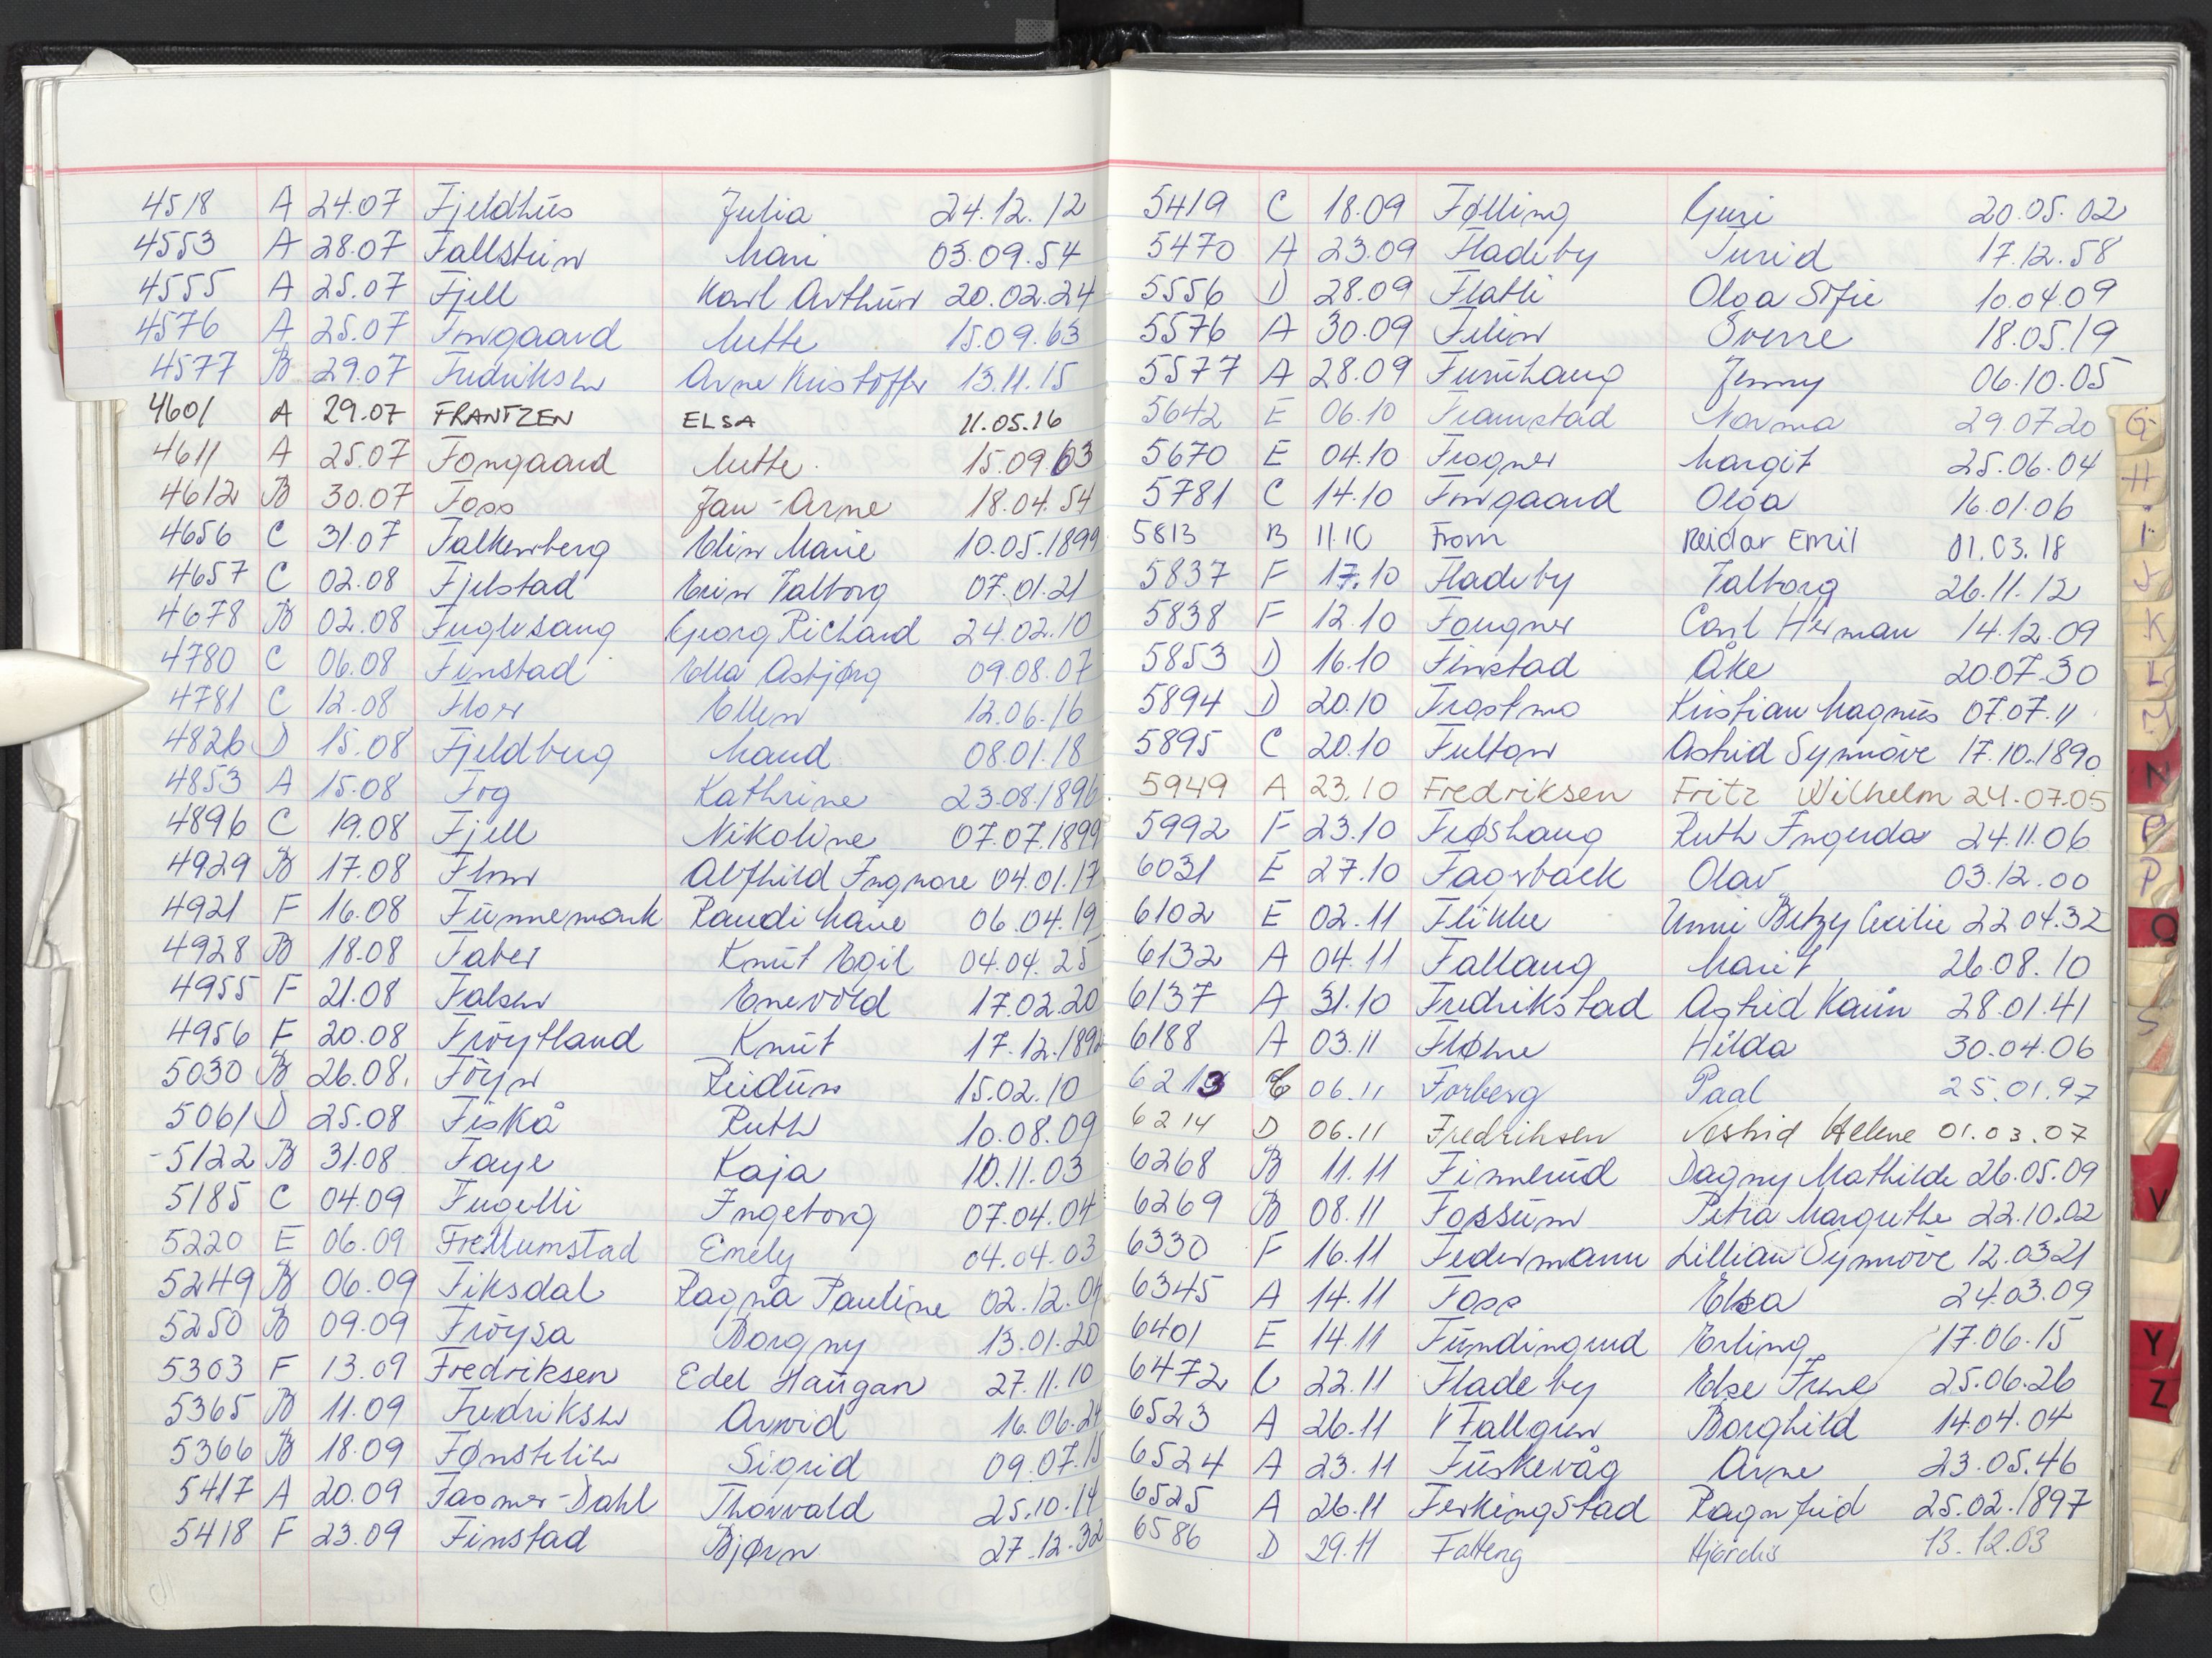 4518 A 24.07 Fjeldhus Julia 24.12.12
4553 A 28.07 Fallstein Mari 03.09.54
4555 A 25.07 Fjell Karl Arthur 20.02.24
4576 A 25.07 Fongaard Mette 15.09.63
4577 B 29.07 Fredriksen Arne Kristoffer 13.11.15
4601 A 29.07 FRANTZEN ELSA 11.05.16
4611 A 25.07 Fongaard Mette 15.09.63
4612 B 30.07 Foss Jan-Arne 18.04.54
4656 C 31.07 Falkenberg Elin Marie 10.05.1899
4657 C 02.08 Fjelstad Valborg 07.01.21
4678 B 02.08 Fuglesang Georg Richard 24.02.10
4780 C 06.08 Finstad Ella Asbjørg 09.08.07
4781 C 12.08 Flor Ellen 12.06.16
4826 D 15.08 Fjeldberg Maud 08.01.18
4853 A 15.08 Fog Kathrine 23.08.1896
4896 C 19.08 Fjell Nikoline 07.07.1899
4929 B 17.08 Alfhild Ingmore 04.01.17
4921 F 16.08 Funnemark Randi Marie 06.04.19
4928 B 18.08 Faber Knut Egil 04.04.25
4955 F 21.08 Falsen Enevold 17.02.20
4956 F 20.08 Frøytland Knut 17.12.1892
5030 B 26.08. Föyn Reidun 15.02.10
5061 D 25.08 Fiskå Ruth 10.08.09
-5122 B 31.08 Faye Kaja 10.11.03
5185 C 04.09 Fugelli Ingeborg 07.04.04
5220 E 06.09 Frellumstad Emely 04.04.03
5249 B 06.09 Fiksdal Ragna Pauline 02.12.04
5250 B 09.09 Frøysa Borgny 13.01.20
5303 F 13.09 Fredriksen Edel Haugan 27.11.10
5365 B 11.09 Fredriksen Arvid 16.06.24
5366 B 18.09 Fønstelien Sigrid 09.07.15
5417 A 20.09 Fasmer-Dahl Thorvald 25.10.14
5418 F 23.09 Finstad Bjørn 27.12.32
5419 C 18.09 Følling Guri 20.05.02
5470 A 23.09 Fladeby Turid 17.12.58
5556 D 28.09 Flatli Olga Sofie 10.04.09
5576 A 30.09 Felin Sverre 18.05.19
5577 A 28.09 Furuhaug Jenny 06.10.05
5642 E 06.10 Framstad Norma 29.07 20
5670 E 04.10 Frogner Margit 25.06.04
5781 C 14.10 Fongaard Olga 16.01.06
5813 B 11.10 From Reidar Emil 01.03.18
5837 F 17.10 Fladeby Valborg 26.11.12
5838 F 12.10 Fougner Carl Herman 14.12.09
5853 D 16.10 Finstad Åke 20.07.30
5894 D 20.10 Frostmo Kristian Magnus 07.07.11
5895 C 20.10 Fulton Astrid Synnøve 17.10.1890
5949 A 23.10 Fredriksen Fritz Wilhelm 24.07.05
5992 F 23.10 Frøshaug Ruth Ingerda 24.11.06
6031 E 27.10 Fagerbäck Olav 03.12.00
6102 E 02.11 Flikke Unni Betzy Cecilie 22 04.32
6132 A 04.11 Fallang Marit 26.08.10
6137 A 31.10 Fredrikstad Astrid Karin 28.01.41
6188 A 03.11 Fløhne Hilda 30.04.06
6213 C 06.11 Forberg Paal 25.01.97
6214 D 06.11 Fredriksen Astrid Helene 01.03.07
6268 B 11.11 Finnerud Dagny Mathilde 26.05.09
6269 B 08.11 Fossum Petra Margrethe 22.10.02
6330 F 16.11 Federmann Lillian Synnøve 12.0321
6345 A 14.11 Foss Elsa 24.03.09
6401 E 14.11 Fundingrud Erling 17.06.15
6472 C 22.11 Fladeby Else Irene 25.06.26
6523 A 26.11 Fallgren Borghild 14.04.04
6524 A 23.11 Fuskevåg Arne 23.05.46
6525 A 26.11 Ferkingstad Ragnfrid 25.02.1897
6586 D 29.11 Fatteng Hjørdis 13.12.03
G
H
I
J
K
L
M
N
P
Q
S
V
Y
Z